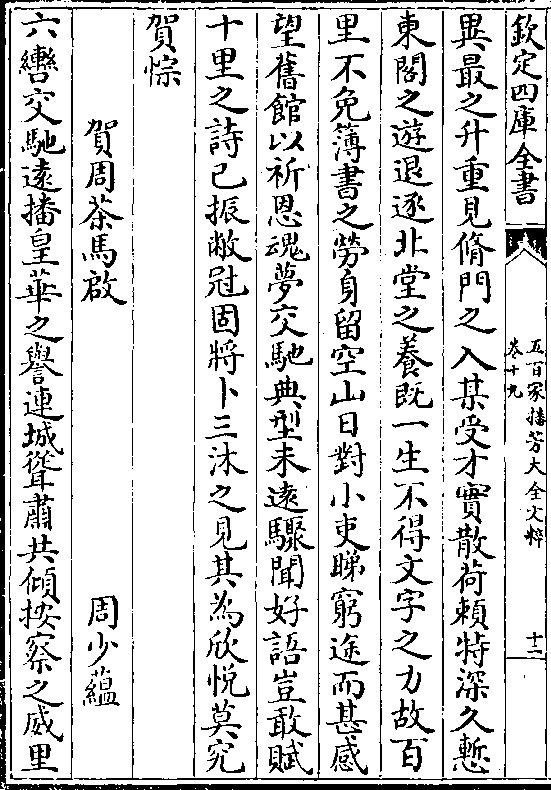 欽定四庫全書
五百家播芳大全文粹
卷十九
十二
異最之升重見脩門之入某受才實散荷賴特深久慙
東閣之遊退逐北堂之養既一生不得文字之力故百
里不免簿書之勞身留空山日對小吏睇窮途而甚感
望舊館以祈恩魂夢交馳典型未遠驟聞好語豈敢賦
十里之詩已振敝冠固將卜三沐之見其為欣悅莫究
賀悰
賀周茶馬啟
周少蘊
六轡交馳遠播皇華之譽連城聳肅共傾按察之威里